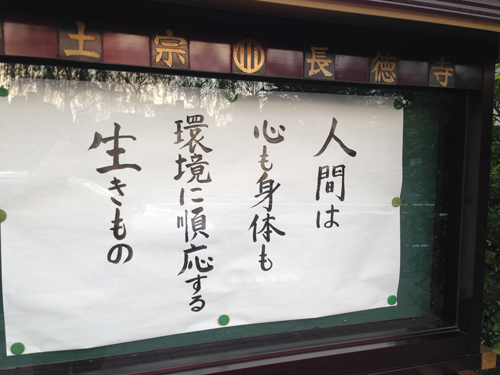 土宗 長徳寺
人間は
心も身体も
環境に順応する
生きもの